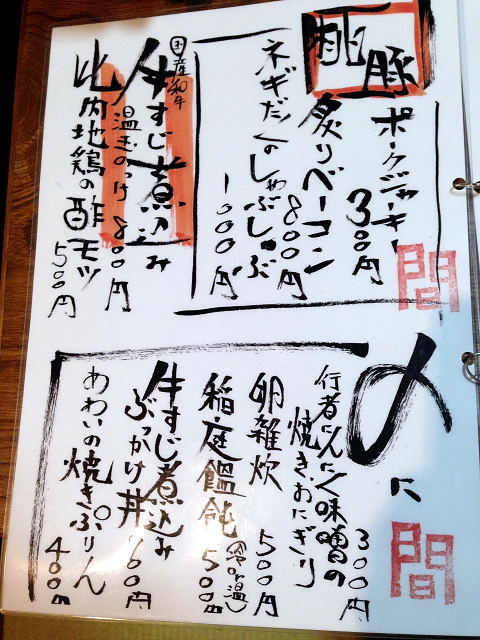 桃豚
ポークジャーキー
300円
炙りベーコン
800円
ネギだくのしゃぶしゃぶ
1000円
間
国産和牛
牛すじ煮込み
温玉のっけ 800円
比内地鶏の酢モツ
500円
〆に
間
行者にんにく味噌の
焼きおにぎり
300円
卵雑炊
500円
稲庭饂飩
(冷or温)
500
牛すじ煮込み
ぶっかけ丼 600円
あわいの焼きぷりん
400円